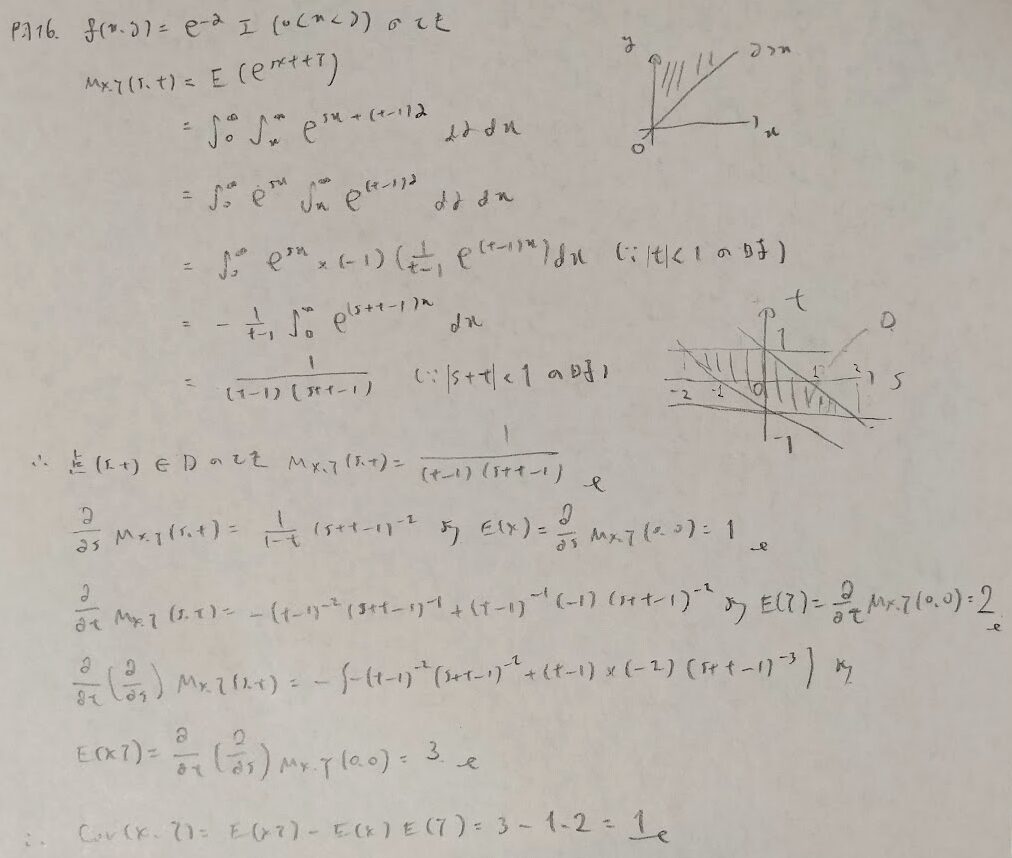 P.116. f(x,y) = e^{-y} I (0<x<y) のとき
y y>x
M_{X,Y}(s,t) = E(e^{sx+tY})
= ∫_0^∞ ∫_x^∞ e^{sx+(t-1)y} dy dx
0 x
= ∫_0^∞ e^{sx} ∫_x^∞ e^{(t-1)y} dy dx
= ∫_0^∞ e^{sx} × (-1) (1/(t-1) e^{(t-1)x}) dx (∵ |t|<1 のとき)
= - 1/(t-1) ∫_0^∞ e^{(s+t-1)x} dx
t D
1
= 1/((t-1)(s+t-1)) (∵ |s+t|<1 のとき)
-2 -1 0 1 2 s
-1
∴ 点(s,t) ∈ D のとき M_{X,Y}(s,t) = 1/((t-1)(s+t-1))
∂/∂s M_{X,Y}(s,t) = 1/(1-t) (s+t-1)^{-2} より E(X) = ∂/∂s M_{X,Y}(0,0) = 1
∂/∂t M_{X,Y}(s,t) = -(t-1)^{-2}(s+t-1)^{-1} + (t-1)^{-1}(-1)(s+t-1)^{-2} より E(Y) = ∂/∂t M_{X,Y}(0,0) = 2
∂/∂t (∂/∂s) M_{X,Y}(s,t) = - {-(t-1)^{-2}(s+t-1)^{-2} + (t-1) × (-2) (s+t-1)^{-3}} より
E(XY) = ∂/∂t (∂/∂s) M_{X,Y}(0,0) = 3
∴ Cov(X,Y) = E(XY) - E(X)E(Y) = 3 - 1·2 = 1